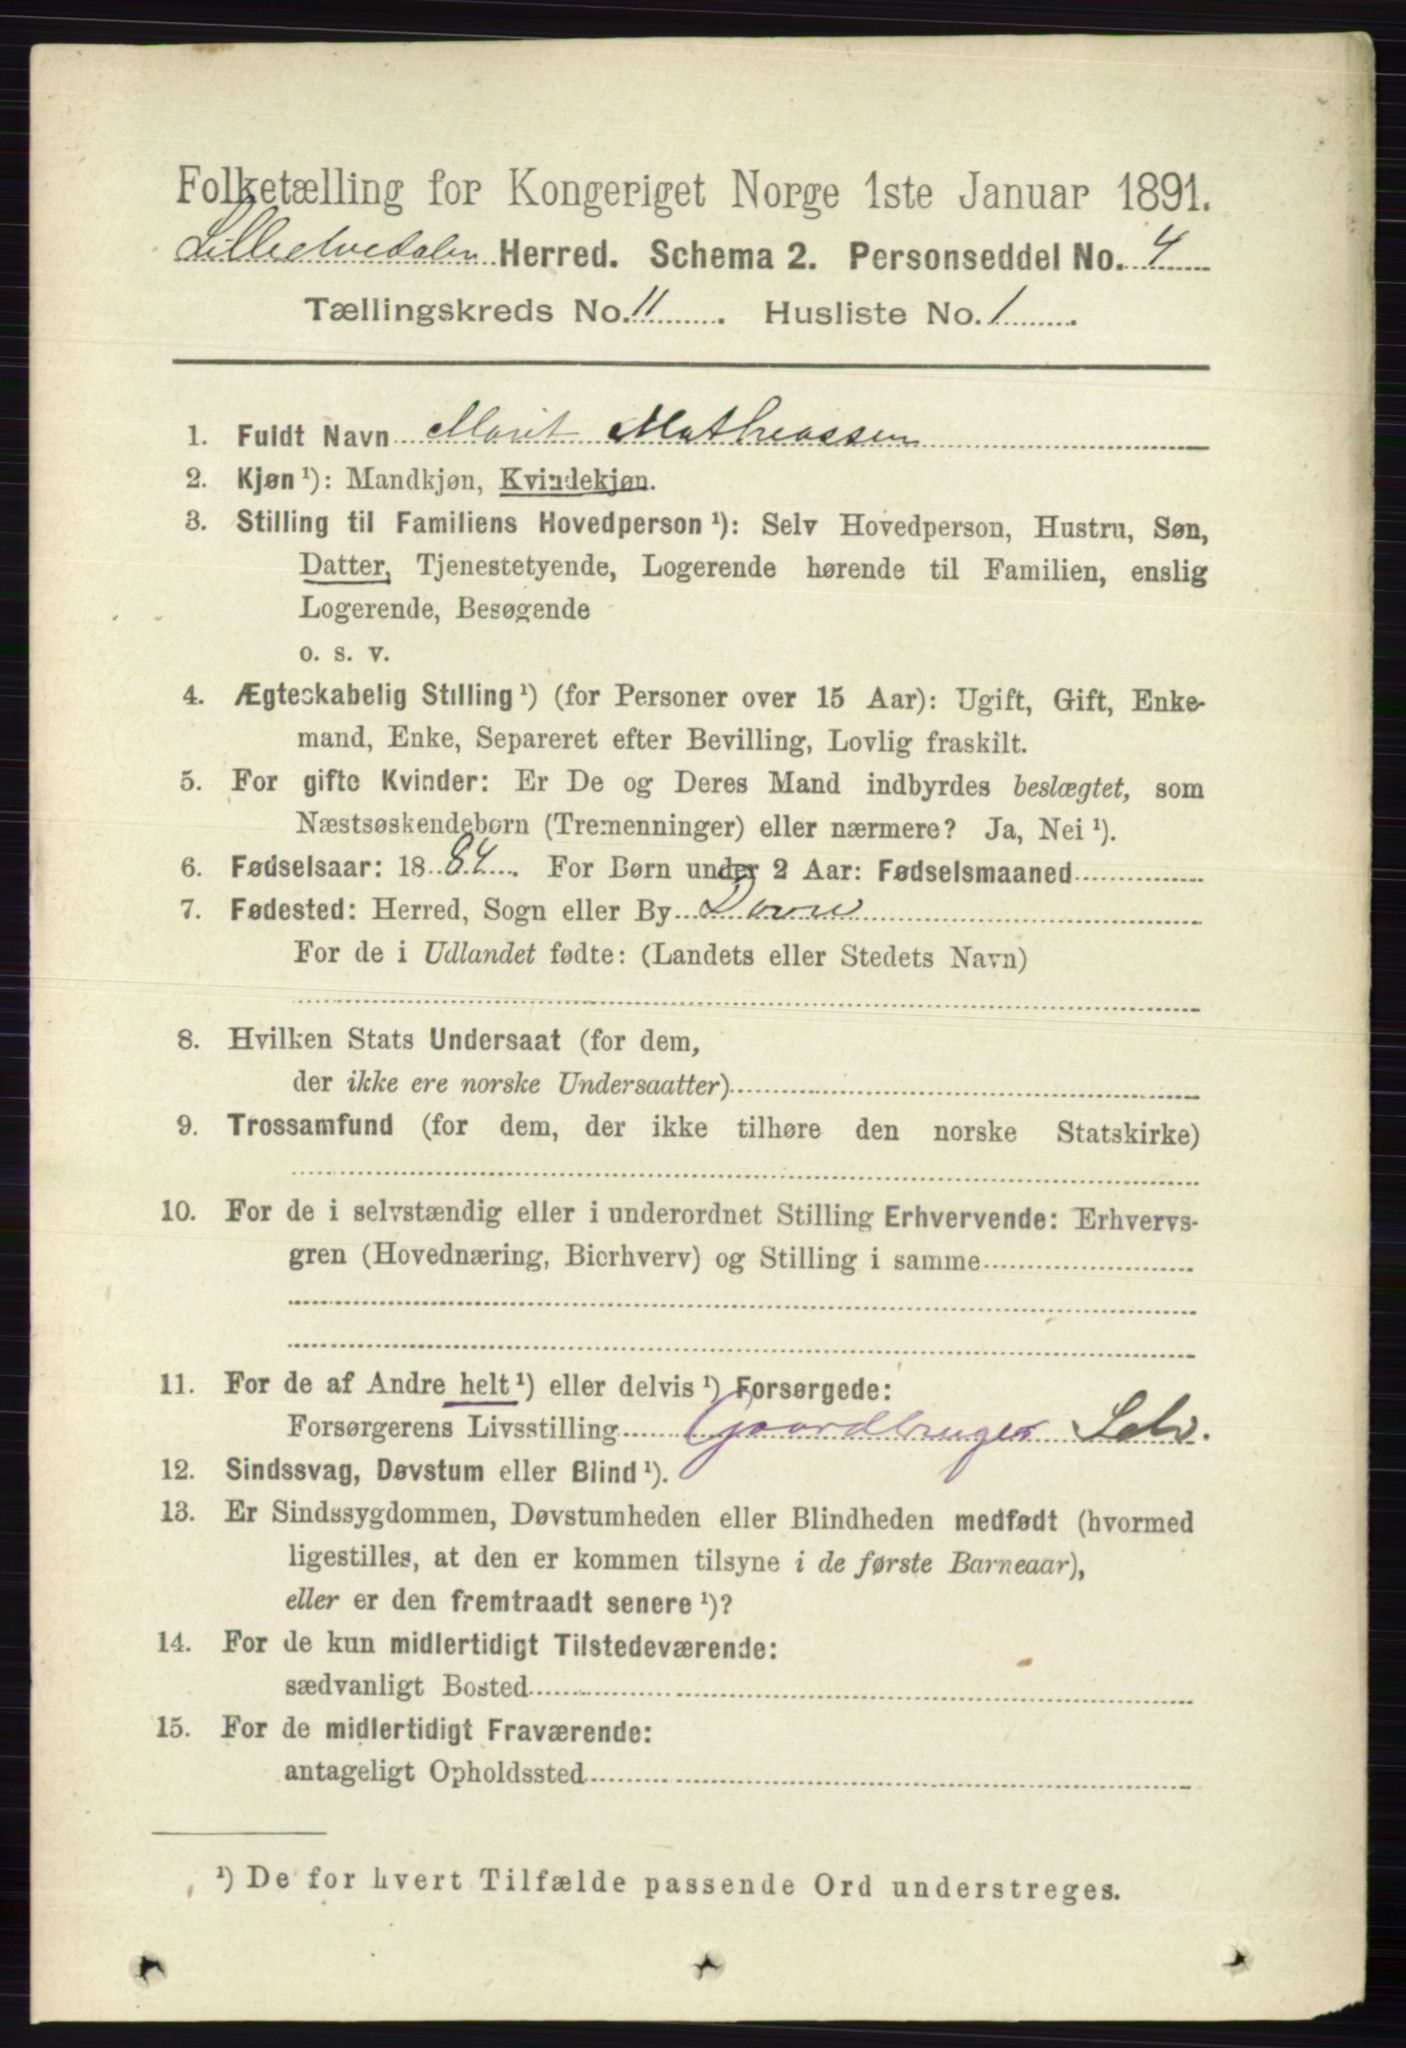 Folketælling for Kongeriget Norge 1ste Januar 1891.
Lilleelvedalen Herred. Schema 2. Personseddel No. 4
Tællingskreds No. 11. Husliste No. 1.
1. Fuldt Navn Marit Mathreassen
2. Kjøn ¹): Mandkjøn, Kvindekjøn.
3. Stilling til Familiens Hovedperson ¹): Selv Hovedperson, Hustru, Søn,
Datter, Tjenestetyende, Logerende hørende til Familien, enslig
Logerende, Besøgende
o. s. v.
4. Ægteskabelig Stilling ¹) (for Personer over 15 Aar): Ugift, Gift, Enke-
mand, Enke, Separeret efter Bevilling, Lovlig fraskilt.
5. For gifte Kvinder: Er De og Deres Mand indbyrdes beslægtet, som
Næstsøskendebørn (Tremenninger) eller nærmere? Ja, Nei ¹).
6. Fødselsaar: 1884. For Børn under 2 Aar: Fødselsmaaned
7. Fødested: Herred, Sogn eller By Dovre
For de i Udlandet fødte: (Landets eller Stedets Navn)
8. Hvilken Stats Undersaat (for dem,
der ikke ere norske Undersaatter)
9. Trossamfund (for dem, der ikke tilhøre den norske Statskirke)
10. For de i selvstændig eller i underordnet Stilling Erhvervende: Erhvervs-
gren (Hovednæring, Bierhverv) og Stilling i samme
11. For de af Andre helt ¹) eller delvis ¹) Forsørgede:
Forsørgerens Livsstilling Gaardbruger Selv.
12. Sindssvag, Døvstum eller Blind ¹).
13. Er Sindssygdommen, Døvstumheden eller Blindheden medfødt (hvormed
ligestilles, at den er kommen tilsyne i de første Barneaar),
eller er den fremtraadt senere ¹)?
14. For de kun midlertidigt Tilstedeværende:
sædvanligt Bosted
15. For de midlertidigt Fraværende:
antageligt Opholdssted
¹) De for hvert Tilfælde passende Ord understreges.